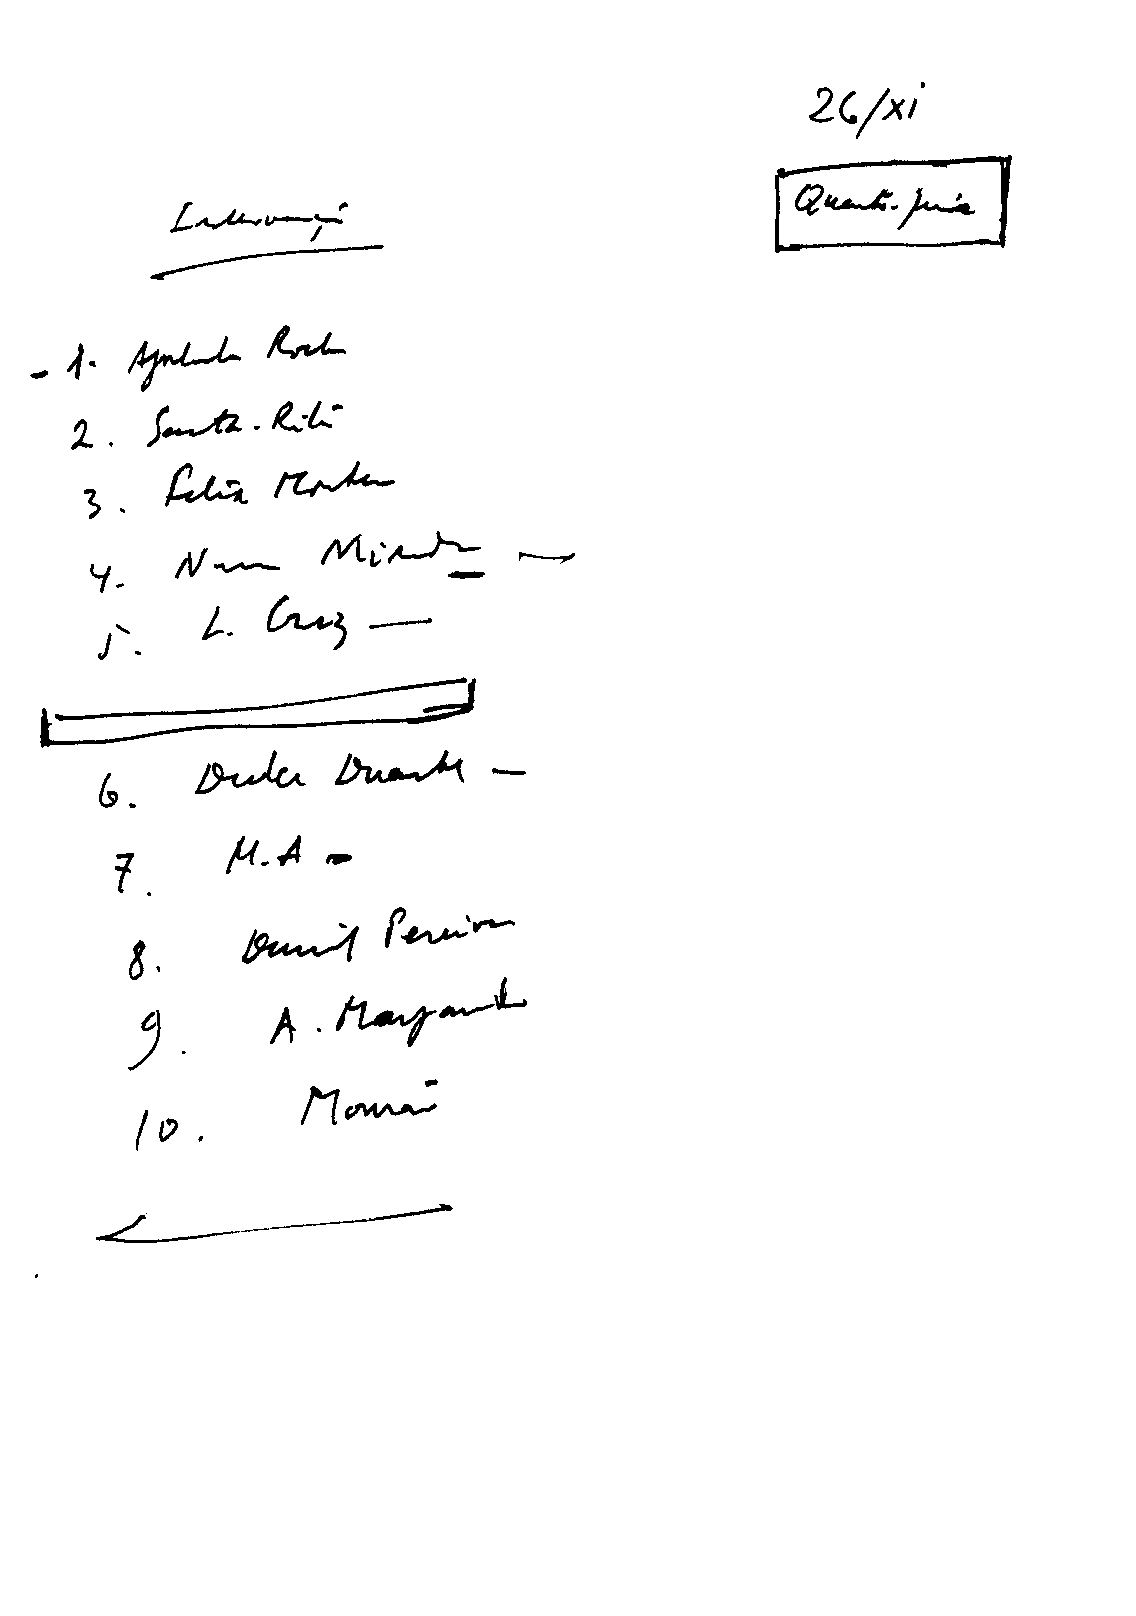 26/xi
Quarta-feira
Intervenç
1. Agostinho Rocha
2. Santa-Rita
3. Felix Monteiro
4. Nuno Miranda
5. L. Cruz
6. Dulce Duarte
7. M.A
8. Daniel Pereira
9. A. Margarido
10. Mourão